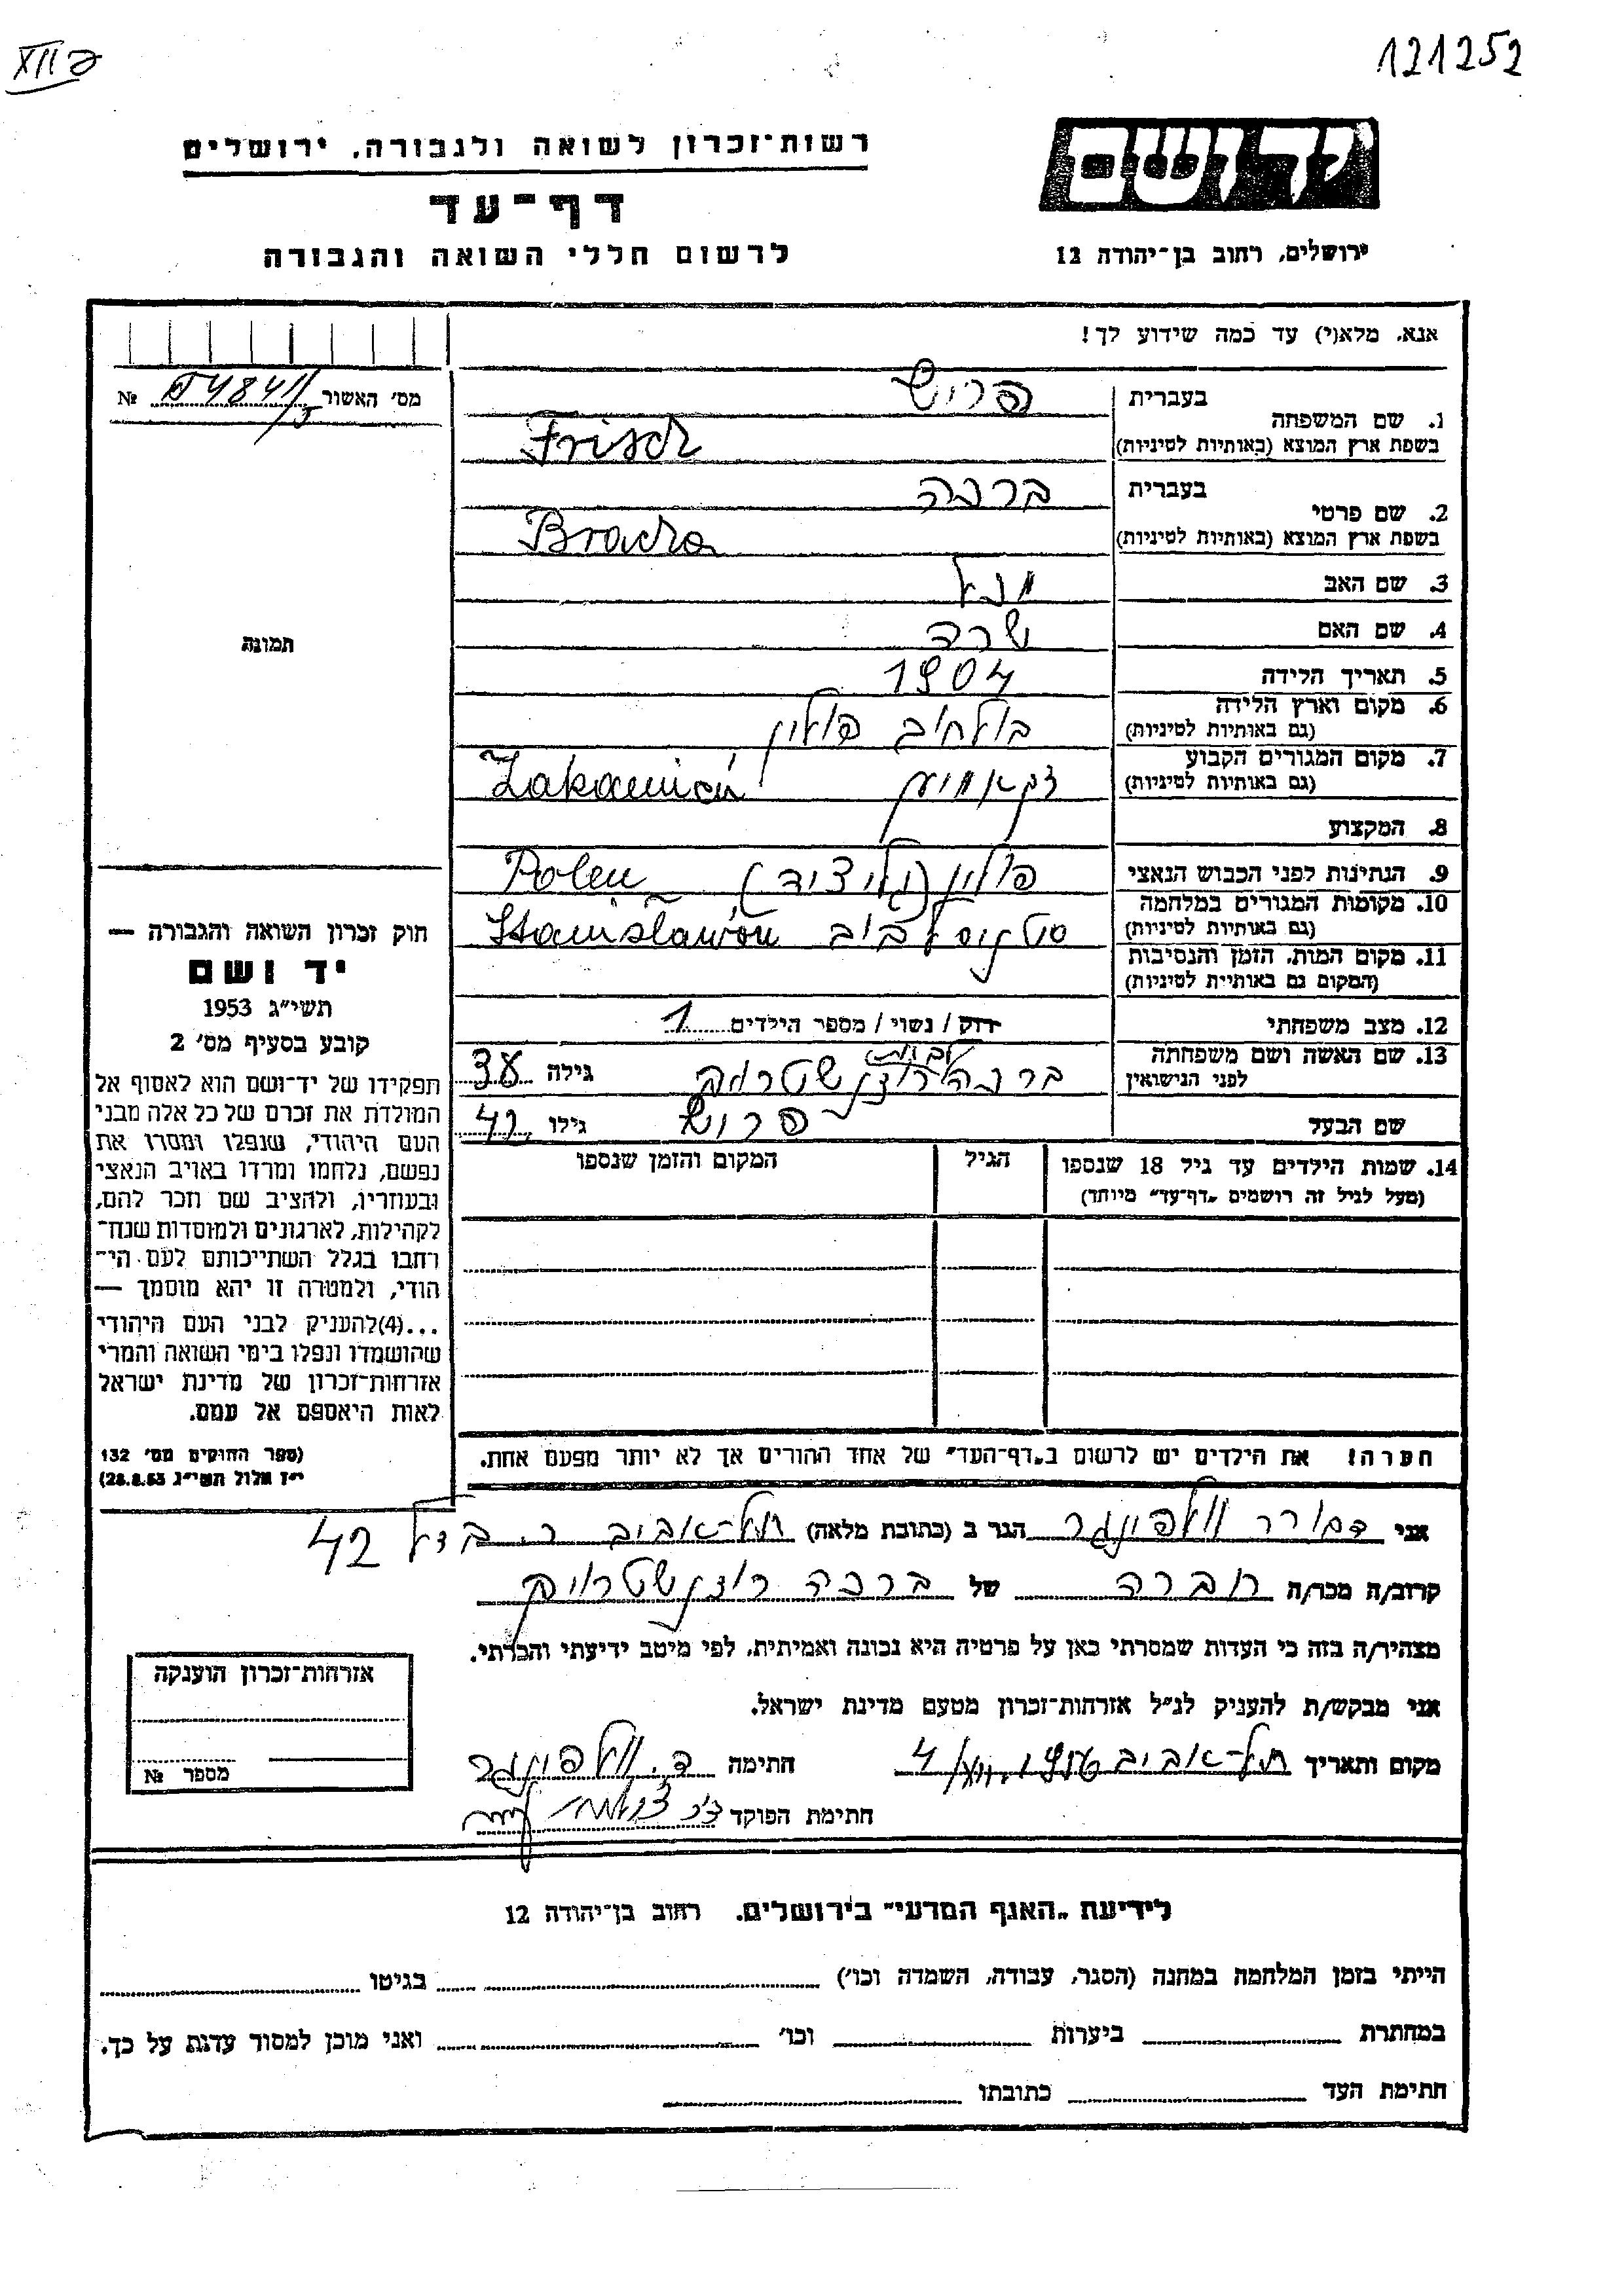 XII ə
121252
יד ושם
ירושלים, רחוב בן־יהודה 12
רשות־זכרון לשואה ולגבורה, ירושלים
דף־עד
לרשום חללי השואה והגבורה
אנא, מלא(י) עד כמה שידוע לך!
מס׳ האשור №
1. שם המשפחה בעברית פריש
בשפת ארץ המוצא (באותיות לטיניות) Frisch
2. שם פרטי בעברית ברכה
בשפת ארץ המוצא (באותיות לטיניות) Bracha
3. שם האב
4. שם האם שרה
5. תאריך הלידה 1904
6. מקום וארץ הלידה בולחוב פולין
(גם באותיות לטיניות)
7. מקום המגורים הקבוע
(גם באותיות לטיניות)
8. המקצוע
9. הנתינות לפני הכבוש הנאצי פולין (גליציה) Polen
10. מקומות המגורים במלחמה
(גם באותיות לטיניות) Stanisławów
11. מקום המות, הזמן והנסיבות
(המקום גם באותיות לטיניות)
12. מצב משפחתי רוק / נשוי / מספר הילדים 1
13. שם האשה ושם משפחתה ברכה רוזנשטרויך גילה 38
לפני הנישואין לבית
שם הבעל פרוש גילו 42
14. שמות הילדים עד גיל 18 שנספו הגיל המקום והזמן שנספו
(מעל לגיל זה רושמים „דף־עד״ מיוחד)
תמונה
חוק זכרון השואה והגבורה —
יד ושם
תשי״ג 1953
קובע בסעיף מס׳ 2
תפקידו של יד־ושם הוא לאסוף אל
המולדת את זכרם של כל אלה מבני
העם היהודי, שנפלו ומסרו את
נפשם, נלחמו ומרדו באויב הנאצי
ובעוזריו, ולהציב שם וזכר להם,
לקהילות, לארגונים ולמוסדות שנח־
רחבו בגלל השתייכותם לעם הי־
הודי, ולמטרה זו יהא מוסמך —
...(4)להעניק לבני העם היהודי
שהושמדו ונפלו בימי השואה והמרי
אזרחות־זכרון של מדינת ישראל
לאות היאספם אל עמם.
(ספר החוקים מס׳ 132
י״ז אלול תשי״ג 28.8.53)
הערה! את הילדים יש לרשום ב„דף־העד״ של אחד ההורים אך לא יותר מפעם אחת.
אני הגר ב (כתובת מלאה) תל־אביב 42
קרוב/ה מכר/ה חברה של ברכה רוזנשטרויך
מצהיר/ה בזה כי העדות שמסרתי כאן על פרטיה היא נכונה ואמיתית, לפי מיטב ידיעתי והכרתי.
אני מבקש/ת להעניק לנ״ל אזרחות־זכרון מטעם מדינת ישראל.
מקום ותאריך תל־אביב חתימה
חתימת הפוקד
אזרחות־זכרון הוענקה
מספר №
לידיעת „האגף המדעי״ בירושלים, רחוב בן־יהודה 12
הייתי בזמן המלחמה במחנה (הסגר, עבודה, השמדה וכו׳) בגיטו
במחתרת ביערות וכו׳ ואני מוכן למסור עדות על כך.
חתימת העד כתובתו